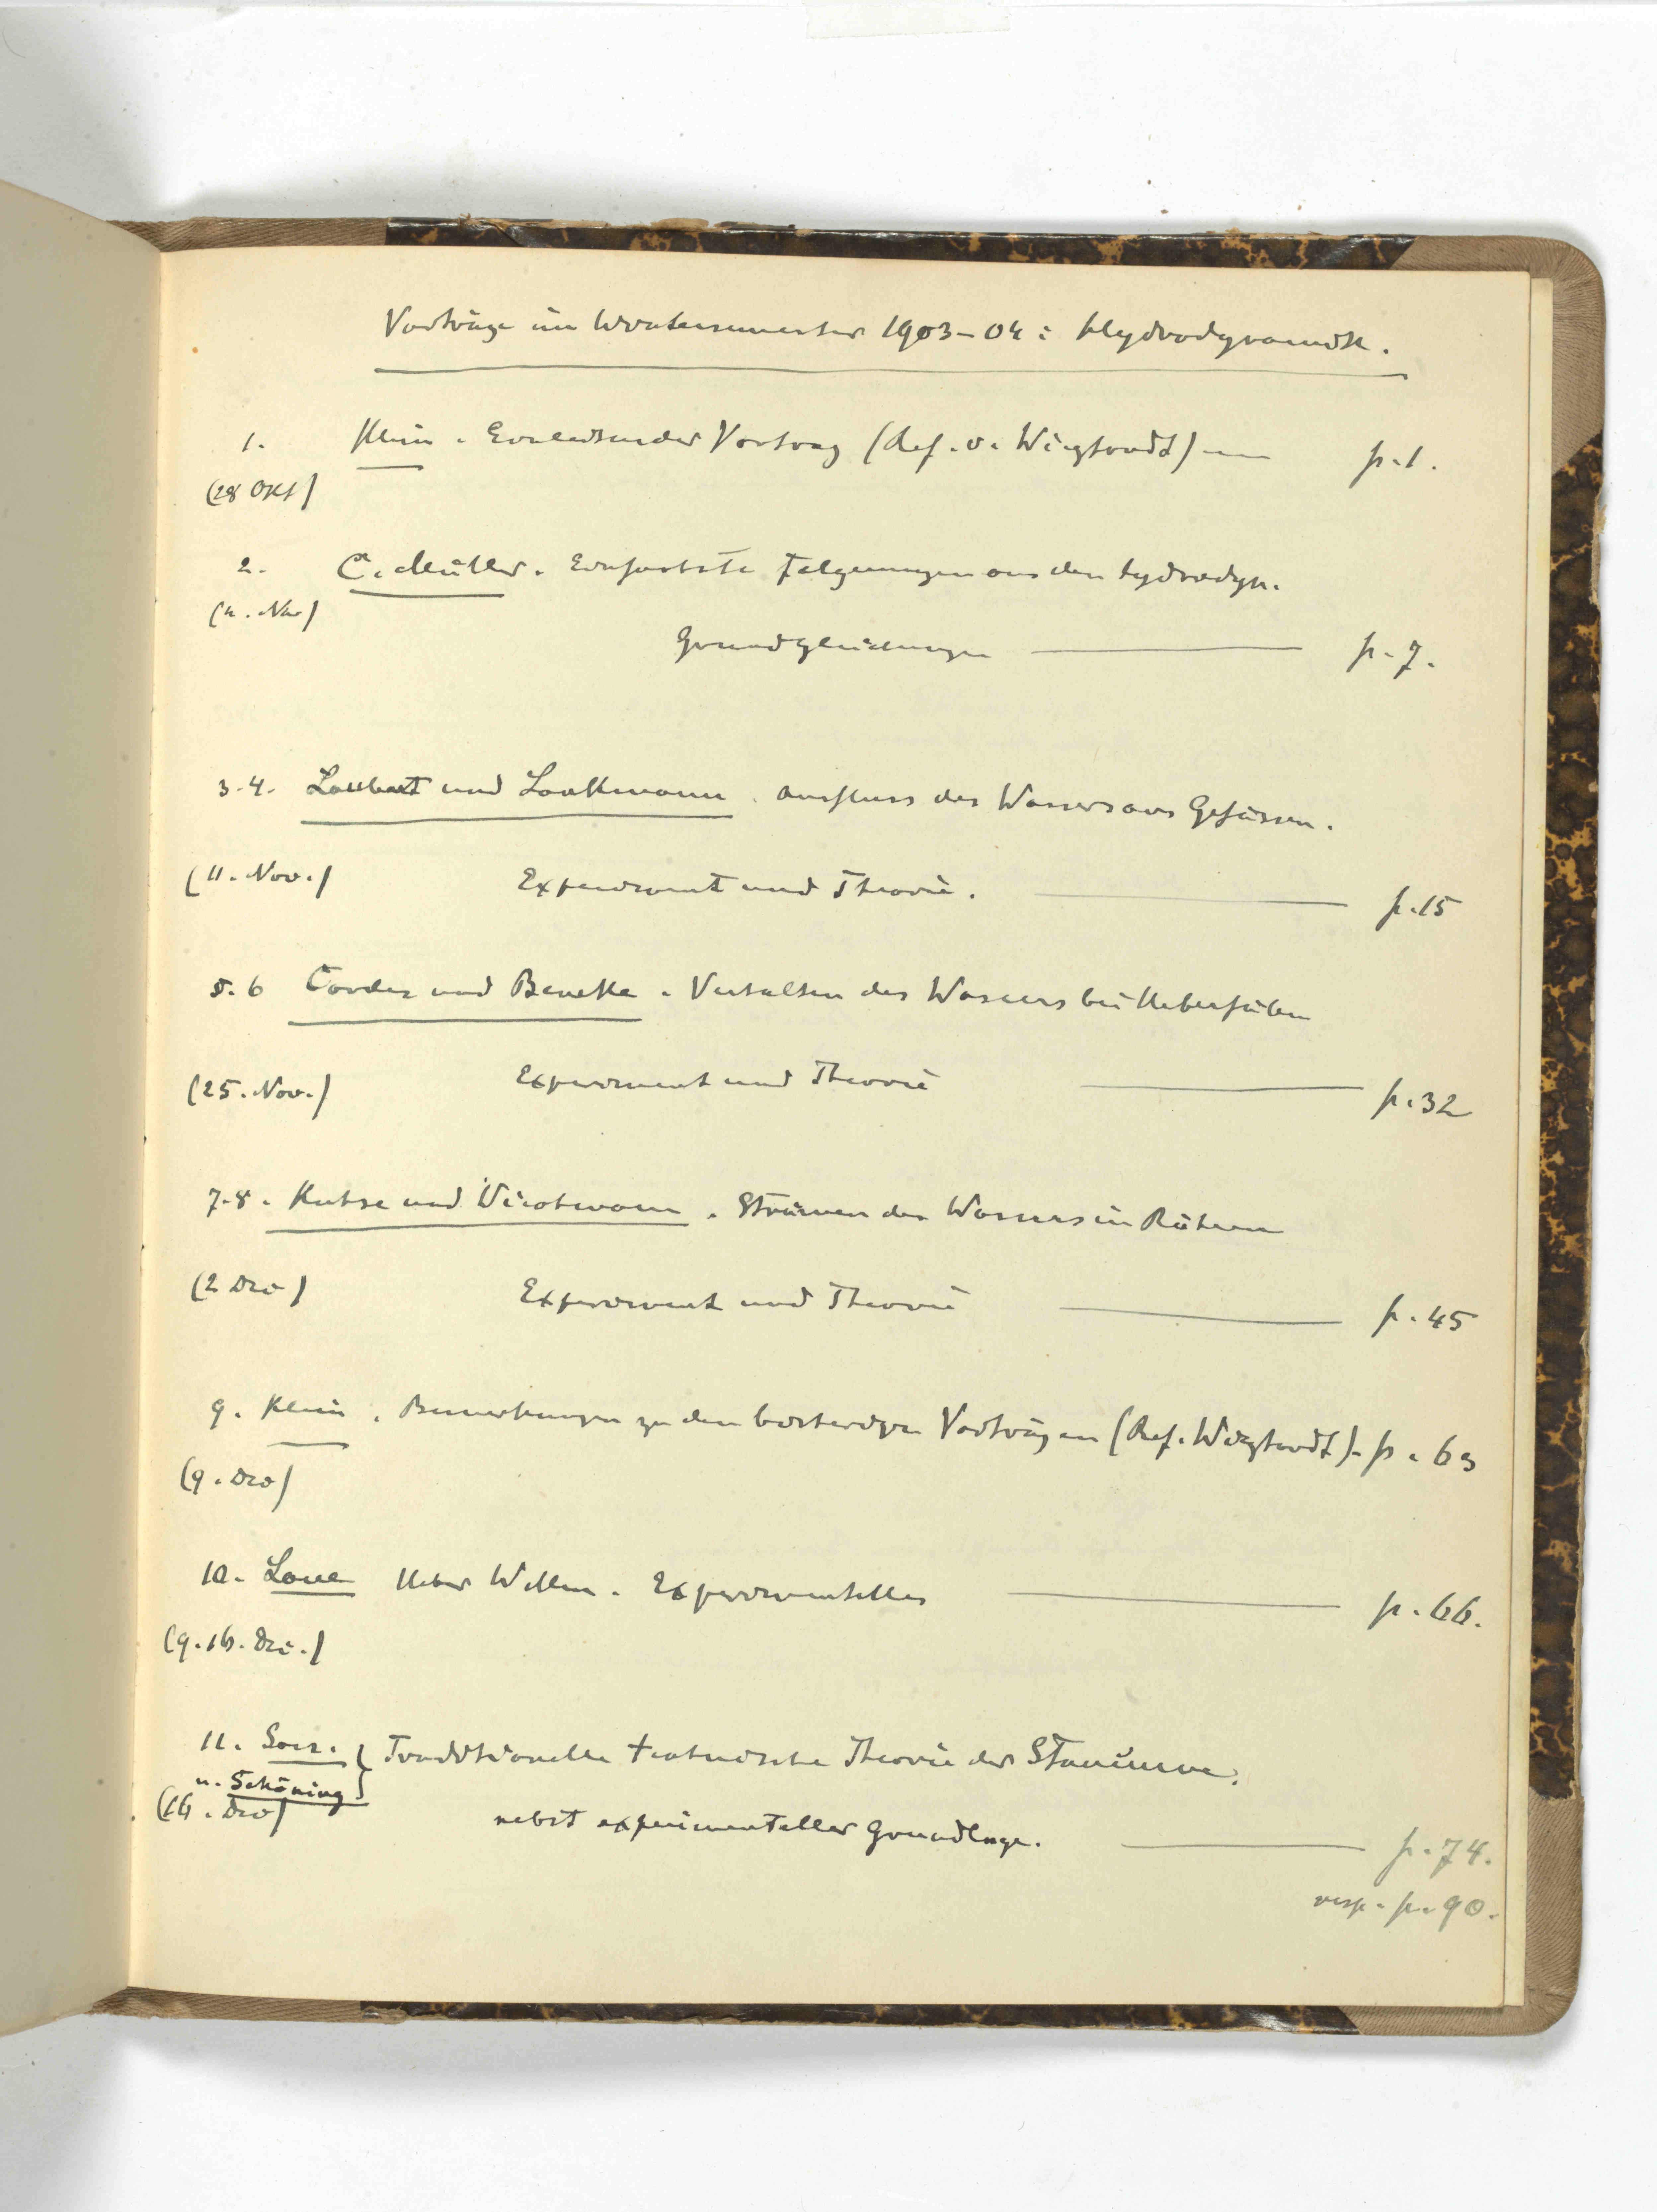 Vorträge im Wintersemester 1903-04: Hydrodynamik.
1. Klein. Einleitender Vortrag (Ref. v. Wieghardt) — p. 1.
(28 Okt)
2. C. Müller. Einfachste Folgerungen aus den hydrodyn.
(4. Nov)
Grundgleichungen — p. 7.
3-4. und Ausfluss des Wassers aus Gefässen.
(11. Nov.) Experiment und Theorie. — p. 15
5. 6 Cordes und Beneke. Verhalten des Wassers bei Ueberfällen
(25. Nov.) Experiment und Theorie — p. 32
7-8. und Strömen des Wassers in Röhren
(2 Dec) Experiment und Theorie — p. 45
9. Klein. Bemerkungen zu den bisherigen Vorträgen (Ref. Wieghardt) - p. 63
(9. Dec)
10. Ueber Wellen. Experimentelles — p. 66.
(9. 16. Dec.)
11. Traditionelle technische Theorie der Staucurve,
u. Schöning
(16. Dec) nebst experimenteller Grundlage. — p. 74.
resp. p. 90.